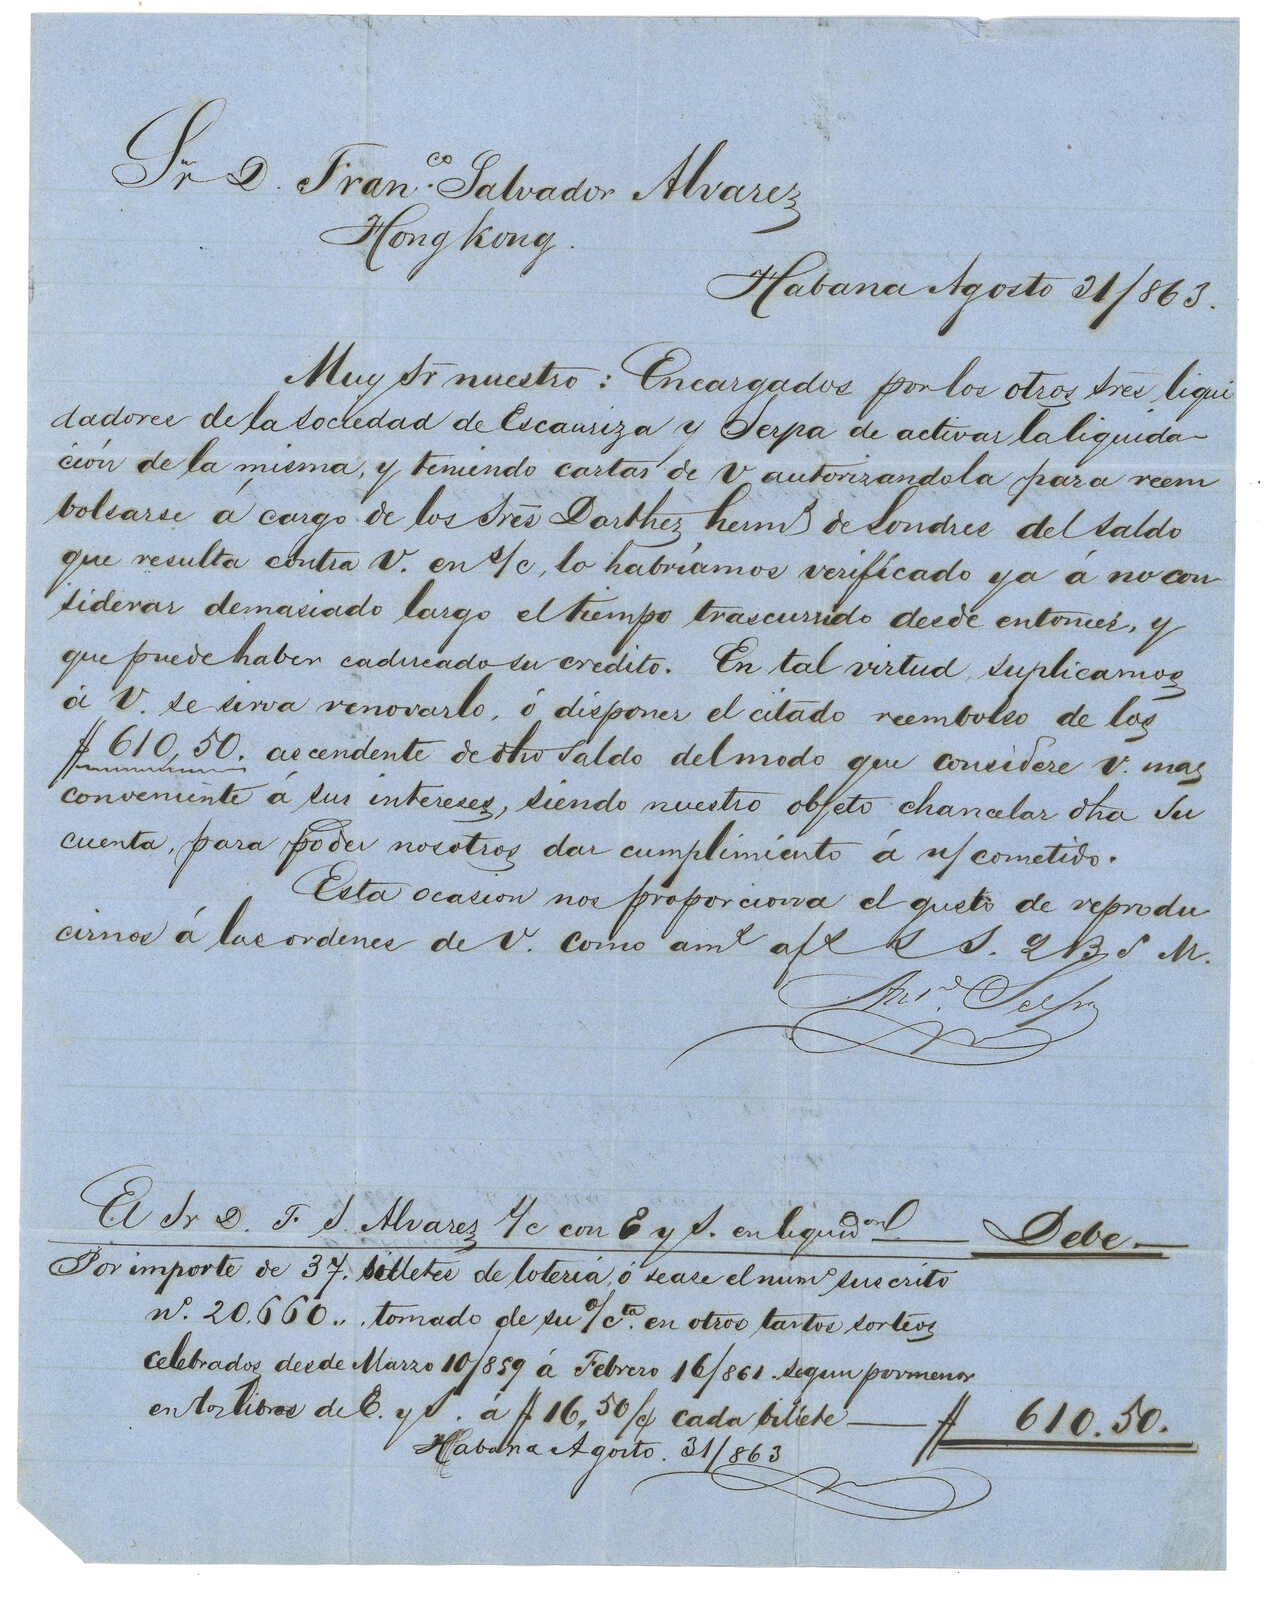 Sr D. Franco. Salvador Alvarez
Hong Kong.
Habana Agosto 31/863.
Muy Sr nuestro: Encargados por los otros tres liqui
dadores de la sociedad de Escauriza y Serpa de activar la liquida-
ción de la misma, y teniendo cartas de V autorizandola para reem
bolsarse á cargo de los Sres Darthez hermos de Londres del saldo
que resulta contra V. en s/c, lo habríamos verificado ya á no con
siderar demasiado largo el tiempo trascurrido desde entonces, y
que puede haber caducado su credito. En tal virtud, suplicamos
á V. se sirva renovarlo, ó disponer el citado reembolso de los
$ 610,50. ascendente de dho saldo del modo que considere V. mas
conveniente á sus intereses, siendo nuestro objeto chancelar dha su
cuenta, para poder nosotros dar cumplimiento á n/ cometido.
Esta ocasion nos proporciona el gusto de reprodu
cirnos á las ordenes de V. como ams afs S S. Q B S M.
Anto. Serpa
El Sr D. F. S. Alvarez s/c con E y S. en liquidon Debe
Por importe de 37. billetes de lotería, ó sease el numo suscrito
no. 20.660.. tomado de su o/cta. en otros tantos sorteos
celebrados desde Marzo 10/859 á Febrero 16/861. segun pormenor
en los libros de E. y S. á $ 16,50/c cada billete $ 610.50.
Habana Agosto. 31/863